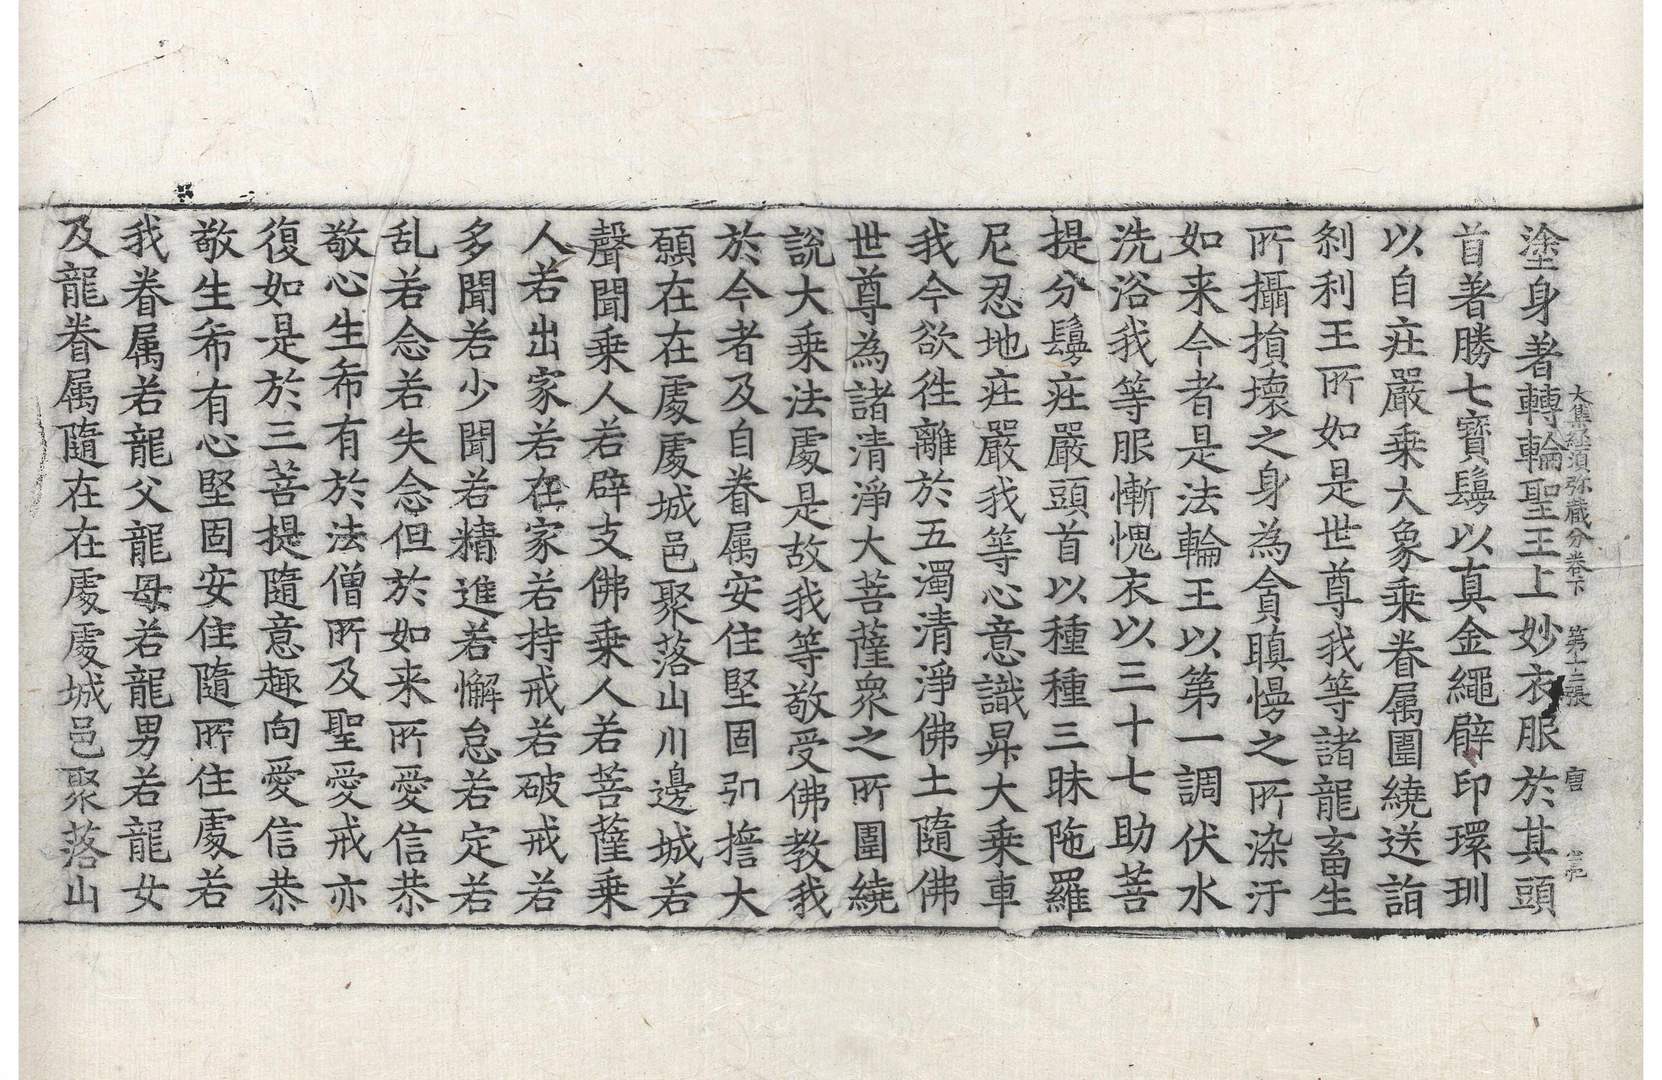 大集經須弥藏分卷下 第十三張 唐
塗身著轉輪聖王上妙衣服於其頭
首著勝七寶鬘以真金繩臂印環玔
以自㽵嚴乗大象乘眷属圍繞送詣
剎利王所如是世尊我等諸龍畜生
所攝損壞之身為貪瞋慢之所染汙
如来今者是法輪王以第一調伏水
洗浴我等服慚愧衣以三十七助菩
提分鬘㽵嚴頭首以種種三昧陁羅
尼忍地㽵嚴我等心意識昇大乗車
我今欲徃離於五濁清淨佛土隨佛
世尊為諸清淨大菩薩衆之所圍繞
說大乗法處是故我等敬受佛教我
於今者及自眷属安住堅固弘擔大
願在在處處城邑聚落山川邊城若
聲聞乗人若辟支佛乗人若菩薩乗
人若出家若在家若持戒若破戒若
多聞若少聞若精進若懈怠若定若
乱若念若失念但於如来所愛信恭
敬心生希有於法僧所及聖愛戒亦
復如是於三菩提隨意趣向愛信恭
敬生希有心堅固安住隨所住處若
我眷属若龍父龍母若龍男若龍女
及龍眷属隨在在處處城邑聚落山